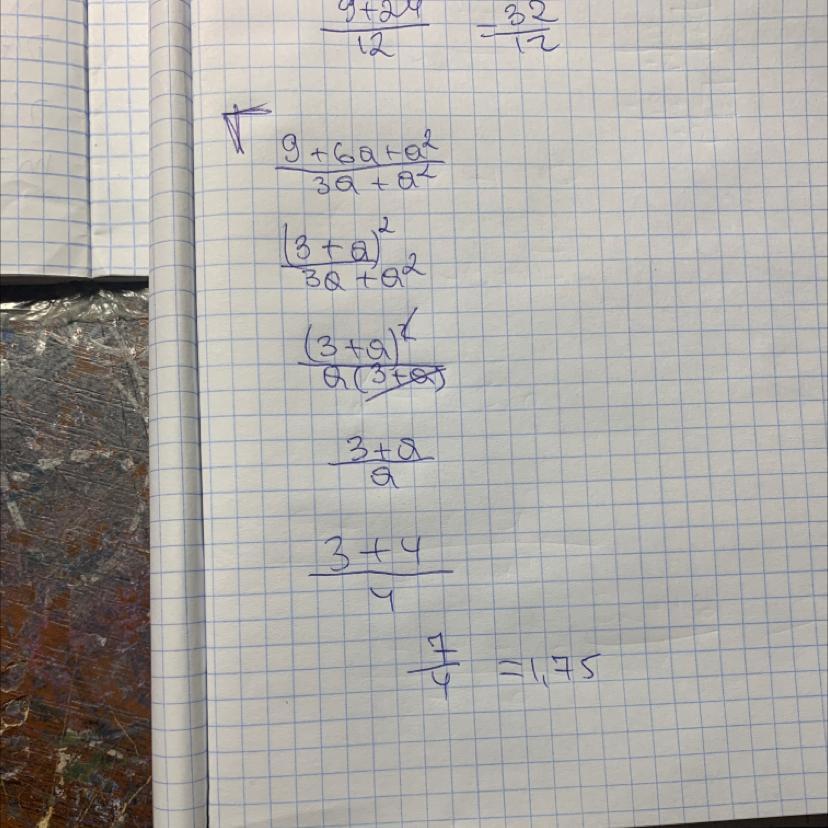 9+24/12 = 32/12
9+6a+a²/3a+a²
(3+a)²/3a+a²
(3+a)²/a(3+a)
3+a/a
3+4/4
7/4 = 1,75